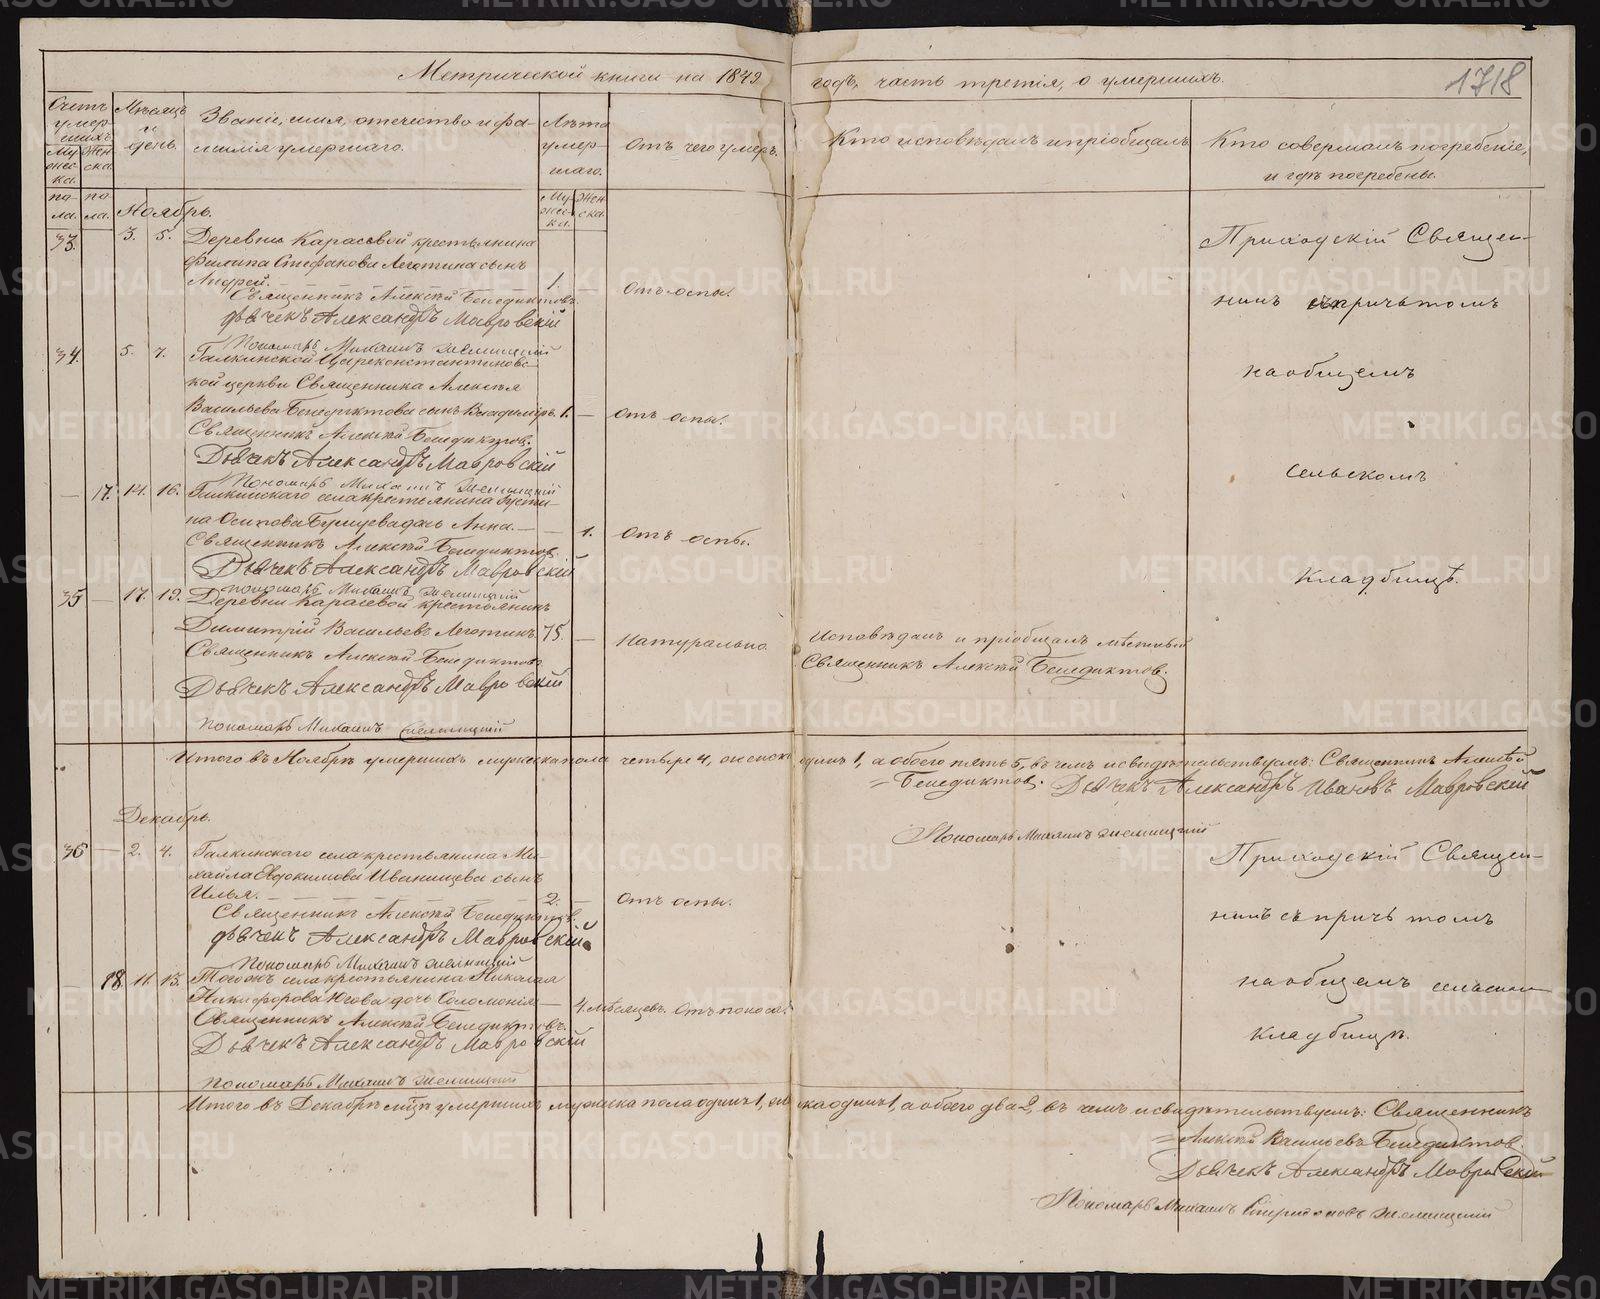 Метрической книги на 1849 годъ, часть третія, о умершихъ.
1718
Счетъ умершихъ.
Мужеска пола.
Женска пола.
Мѣсяцъ и день.
Званіе, имя, отечество и фамилія умершаго.
Лѣта умершаго.
Мужеска.
Женска.
Отъ чего умеръ.
Кто исповѣдалъ и пріобщалъ
Кто совершалъ погребеніе,
и гдѣ погребены.
Ноябрь.
33. 3. 5. Деревни Карасевой крестьянина
Филипа Стефанова Леготина сынъ
Андрей. 1. — Отъ оспы.
Священникъ Алексѣй Бенедиктовъ.
Дьячекъ Александръ Мавровскій
Пономарь Михаилъ
34. 5. 7. Галкинской Цареконстантиновс-
кой церкви Священника Алексѣя
Васильева Бенедиктова сынъ Владиміръ. 1. — Отъ оспы.
Священникъ Алексѣй Бенедиктовъ.
Дьячекъ Александръ Мавровскій
Пономарь Михаилъ
— 17. 14. 16. Галкинскаго села крестьянина Густи-
на Осипова дочь Анна. — 1. Отъ оспы.
Священникъ Алексѣй Бенедиктовъ
Дьячекъ Александръ Мавровскій
Пономарь Михаилъ
35 — 17. 19. Деревни Карасевой крестьянинъ
Димитрій Васильевъ Леготинъ. 75. — Натурально.
Исповѣдалъ и пріобщалъ мѣстный
Священникъ Алексѣй Бенедиктовъ.
Священникъ Алексѣй Бенедиктовъ
Дьячекъ Александръ Мавровскій
Пономарь Михаилъ
Приходскій Священ-
никъ съ причьтомъ
на общемъ
сельскомъ
кладбищѣ.
Итого въ Ноябрѣ умершихъ мужеска пола четыре 4, женска одинъ 1, а обоего пять 5, въ чемъ и свидѣтельствуемъ: Священникъ Алексѣй
= Бенедиктовъ. Дьячекъ Александръ Ивановъ Мавровскій
Пономарь Михаилъ
Декабрь.
36 — 2. 4. Галкинскаго села крестьянина Ми-
хайла Евфокимова Иванищева сынъ
Илья. 2. — Отъ оспы.
Священникъ Алексѣй Бенедиктовъ.
Дьячекъ Александръ Мавровскій
Пономарь Михаилъ
— 18. 11. 13. Тогожъ села крестьянина Николая
Никифорова Югова дочь Соломонія — 4. мѣсяцевъ. Отъ поноса.
Священникъ Алексѣй Бенедиктовъ.
Дьячекъ Александръ Мавровскій
Пономарь Михаилъ
Приходскій Священ-
никъ съ причьтомъ
на общемъ сельском
кладбищѣ.
Итого въ Декабрѣ м-цѣ умершихъ мужеска пола одинъ 1, женска одинъ 1, а обоего два 2, въ чемъ и свидѣтельствуемъ: Священникъ
= Алексѣй Васильевъ Бенедиктовъ.
Дьячекъ Александръ Мавровскій
Пономарь Михаилъ
METRIKI.GASO-URAL.RU